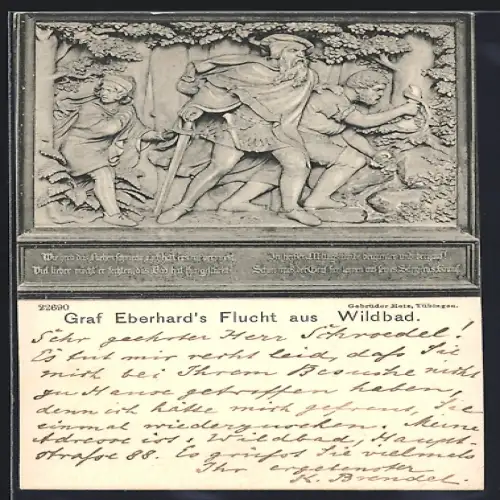 Wie wird das Fliehen schwer
Viel lieber möcht er fechten, das Bad hat
22690
Gebrüder Metz, Tübingen.
Graf Eberhard's Flucht aus Wildbad.
Sehr geehrter Herr Schroedel!
Es tut mir recht leid, dass Sie
mich bei Ihrem Besuche nicht
zu Hause getroffen haben,
denn ich hätte mich gefreut, Sie
einmal wiederzusehen. Meine
Adresse ist: Wildbad, Haupt-
strasse 88. Es grüsst Sie vielmals
Ihr ergebenster
K. Brendel.